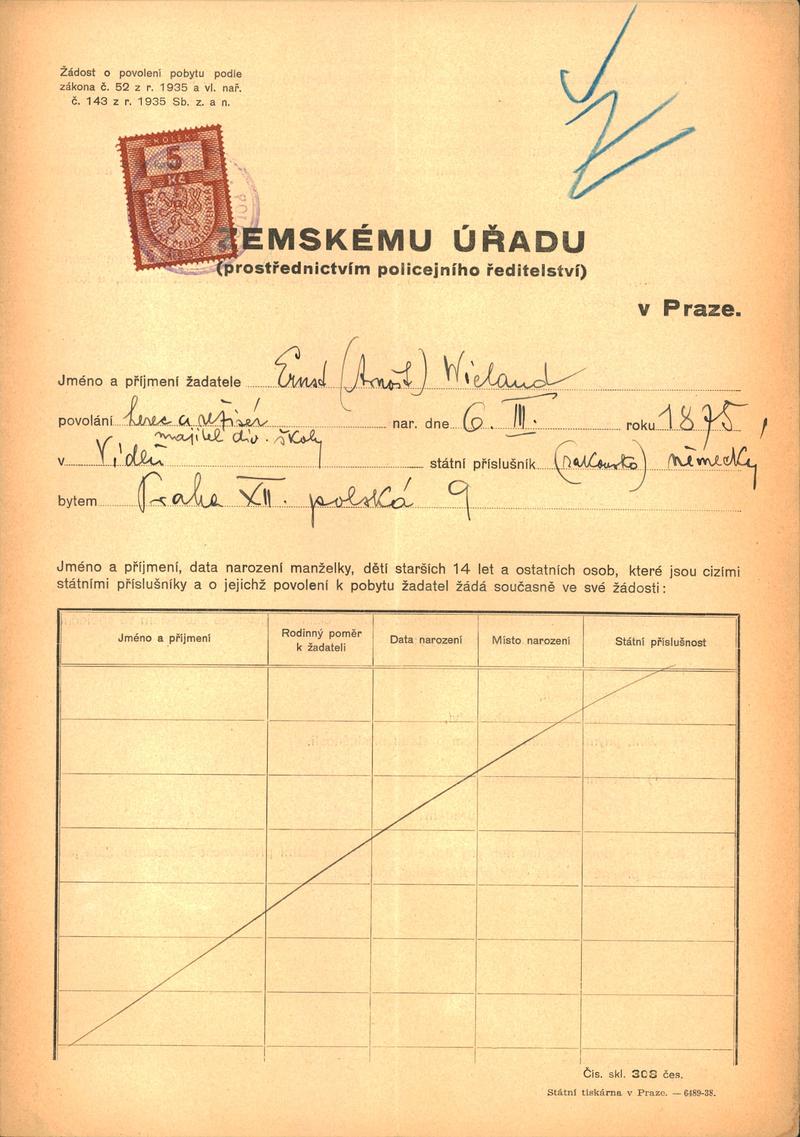 Žádost o povolení pobytu podle
zákona č. 52 z r. 1935 a vl. nař.
č. 143 z r. 1935 Sb. z. a n.
KOLEK
5
Kč
ZEMSKÉMU ÚŘADU
(prostřednictvím policejního ředitelství)
v Praze.
Jméno a příjmení žadatele Ernst (Arnošt) Wieland
povolání herec a režisér nar. dne 6. III. roku 1875,
majitel div. školy
v Vídeň státní příslušník (rakousko) německý
bytem Praha XII. polská 9
Jméno a příjmení, data narození manželky, dětí starších 14 let a ostatních osob, které jsou cizími
státními příslušníky a o jejichž povolení k pobytu žadatel žádá současně ve své žádosti:
Jméno a příjmení Rodinný poměr k žadateli Data narození Místo narození Státní příslušnost
Čís. skl. 308 čes.
Státní tiskárna v Praze. — 6489-38.